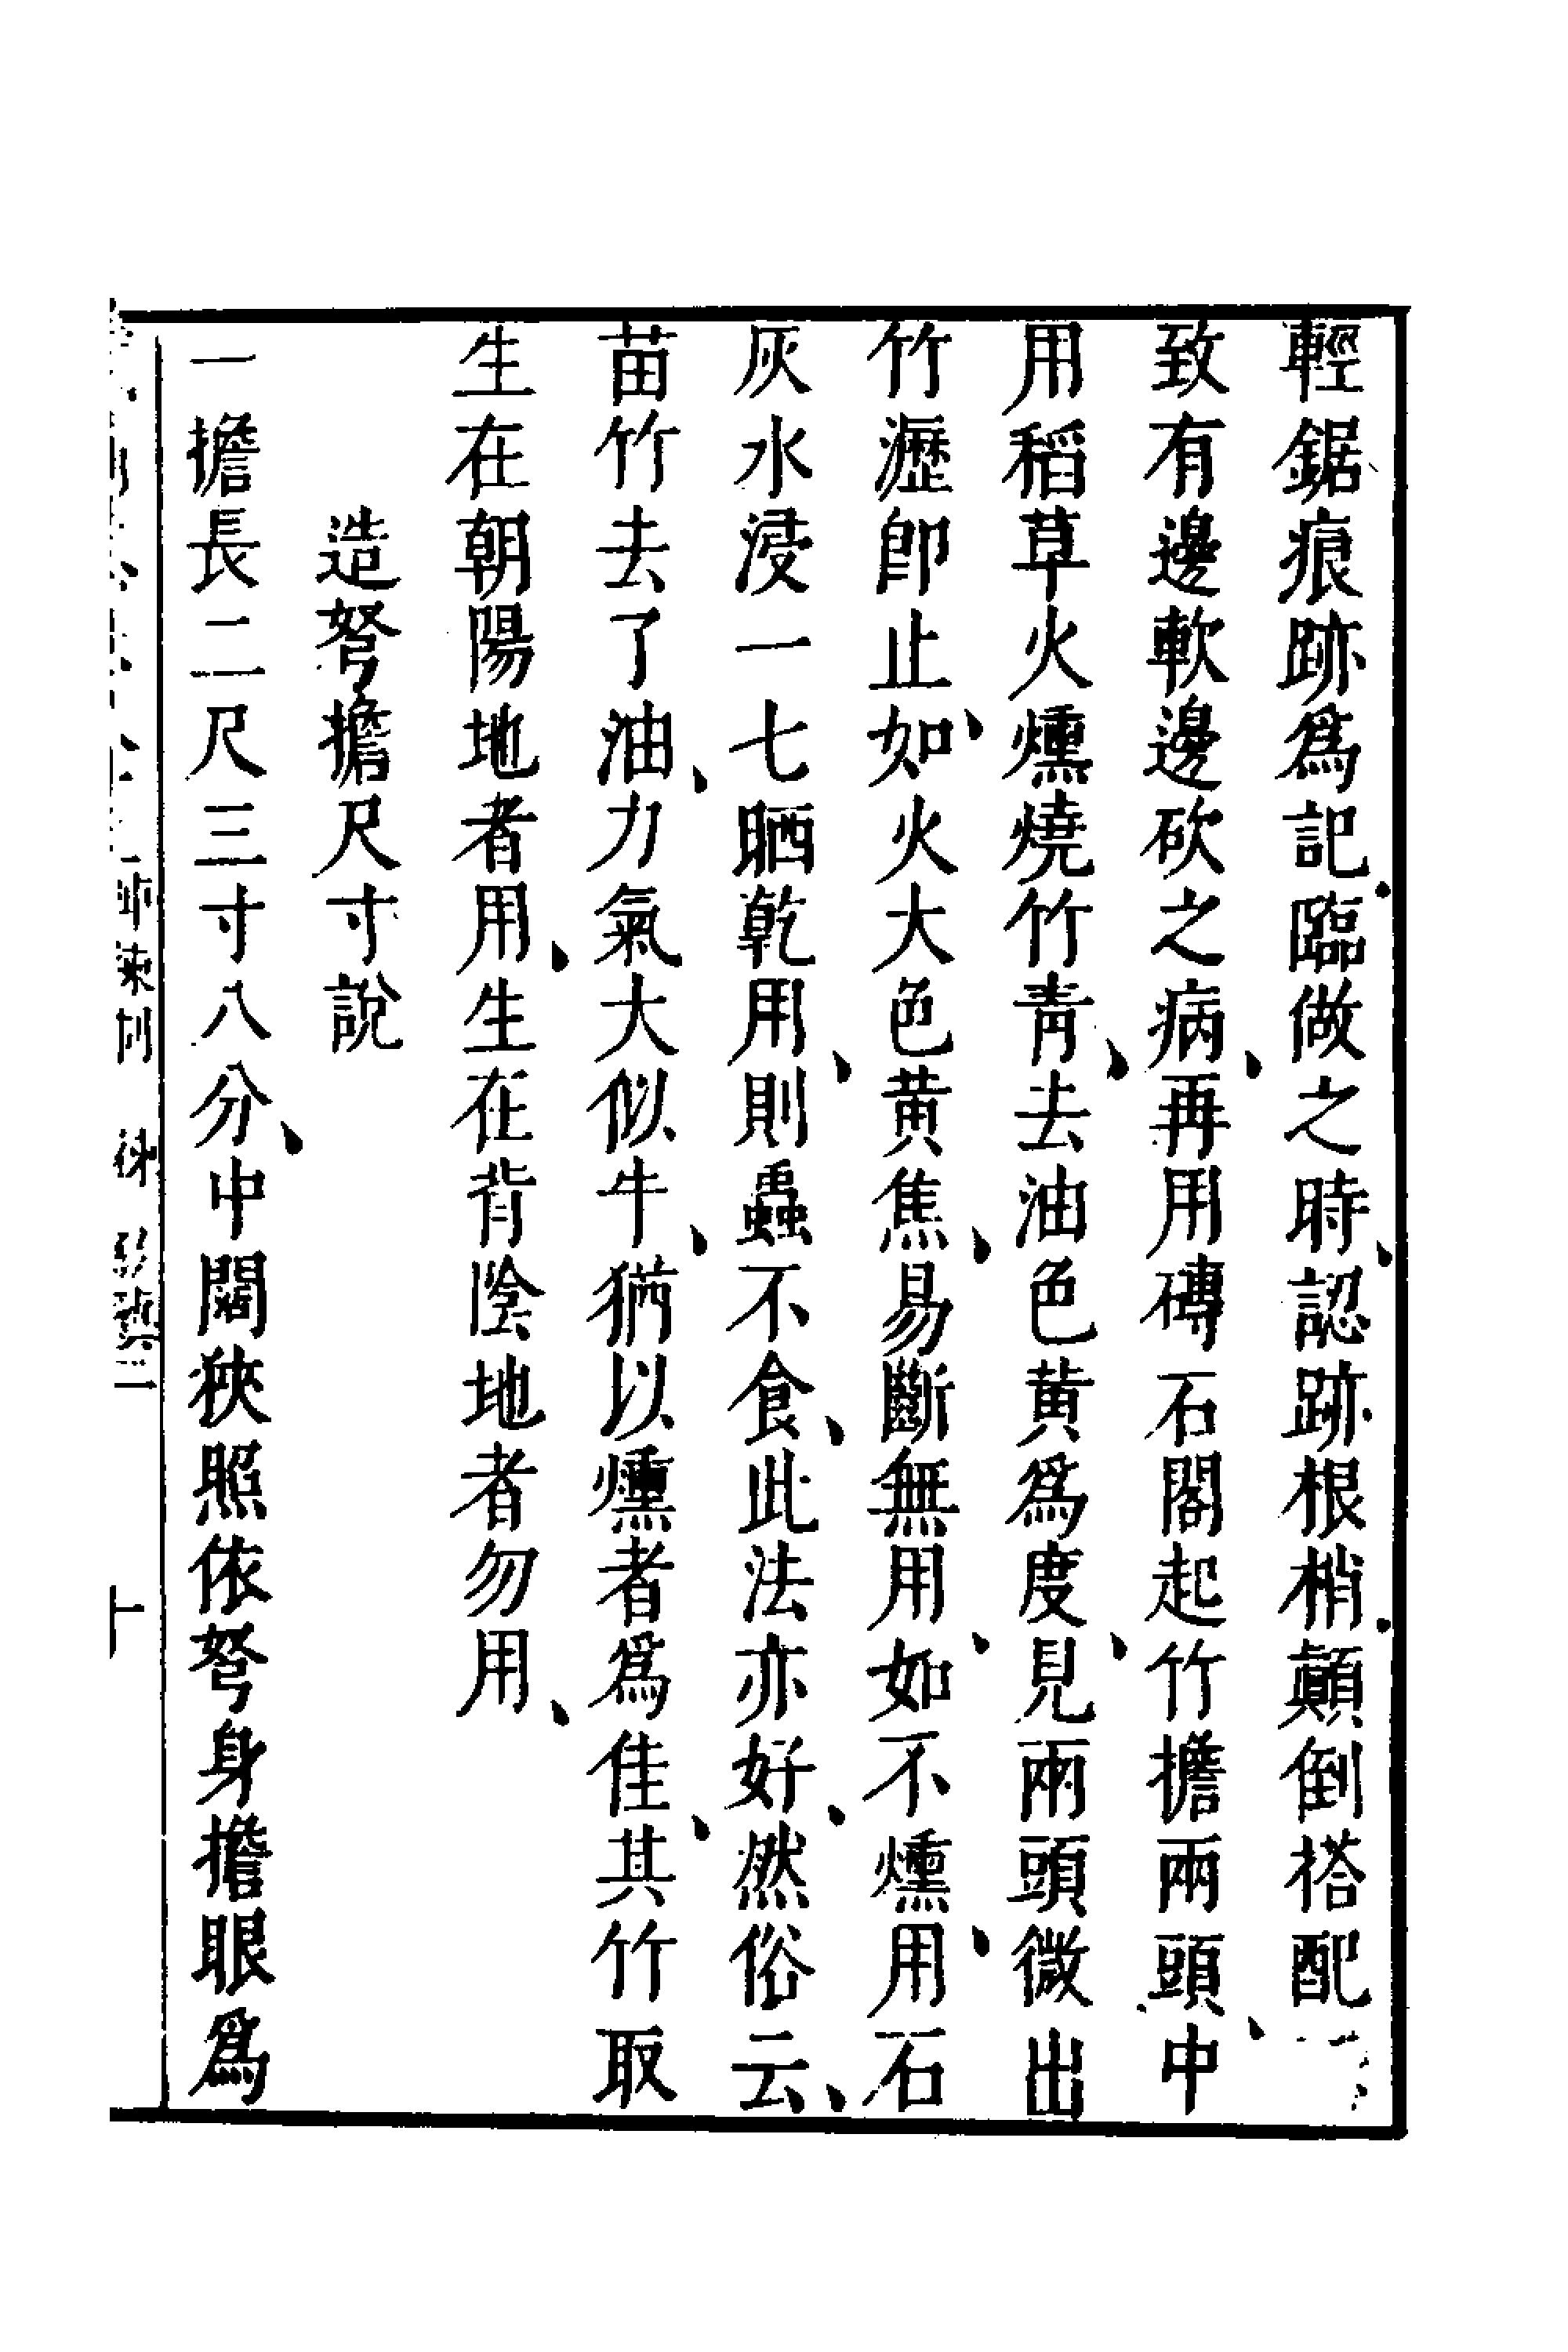 輕鋸痕跡爲記臨做之時認跡根梢顛倒搭配
致有邊軟邊砍之病再用磚石閣起竹擔兩頭中
用稻草火燻燒竹青去油色黄爲度見兩頭微出
竹瀝即止如火大色黄焦易斷無用如不燻用石
灰水浸一七晒乾用則蟲不食此法亦好然俗云
苗竹去了油力氣大似牛猶以燻者爲佳其竹取
生在朝陽地者用生在背陰地者勿用
造弩擔尺寸說
一擔長二尺三寸八分中闊狹照依弩身擔眼爲